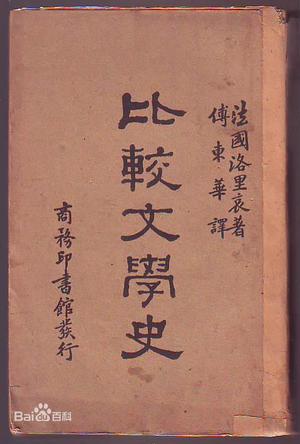 法國洛里哀著
傅東華譯
比較文學史
商務印書館發行
Bai百科